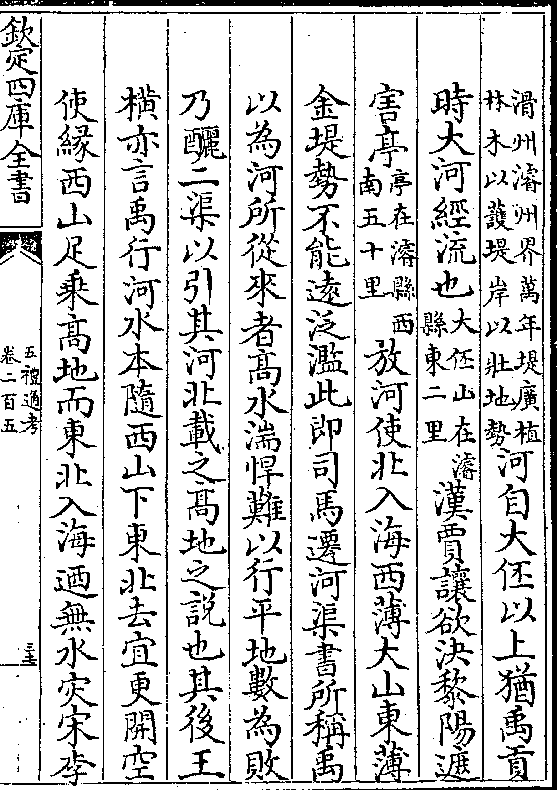 滑州濬州界萬年堤廣植
林木以護堤岸以壯地勢
河自大伾以上猶禹貢
時大河經流也
大伾山在濬
縣東二里
漢賈讓欲決黎陽遮
害亭
亭在濬縣西
南五十里
放河使北入海西薄大山東薄
金堤勢不能遠泛濫此即司馬遷河渠書所稱禹
以為河所從來者髙水湍悍難以行平地數為敗
乃釃二渠以引其河北載之髙地之說也其後王
橫亦言禹行河水本隨西山下東北去宜更開空
使縁西山足乗髙地而東北入海迺無水灾宋李
欽定四庫全書
五禮通考
卷二百五